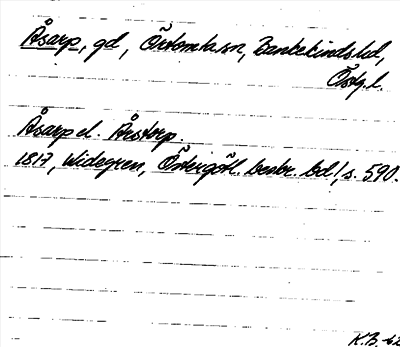 Åsarp, gd, Örtomta sn, Bankekinds hd,
Östg. l.
Åsarp el. Åstorp.
1817, Widegren, Östergötl. beskr. bd 1, s. 590.
K.B. -62